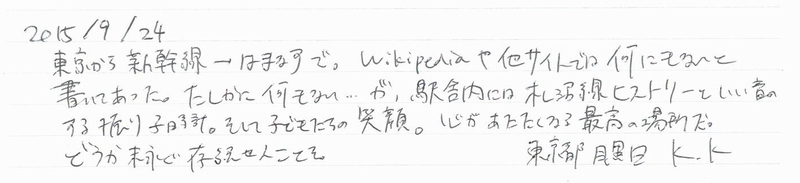 2015/9/24
東京から新幹線→はまなすで。Wikipediaや他サイトでは何にもないと
書いてあった。たしかに何もない…が、駅舎内には札沼線ヒストリーといい音の
する振り子時計。そして子どもたちの笑顔。心があたたくなる最高の場所だ。
どうか末永く存続せんことを。 東京都 目黒区 K.K